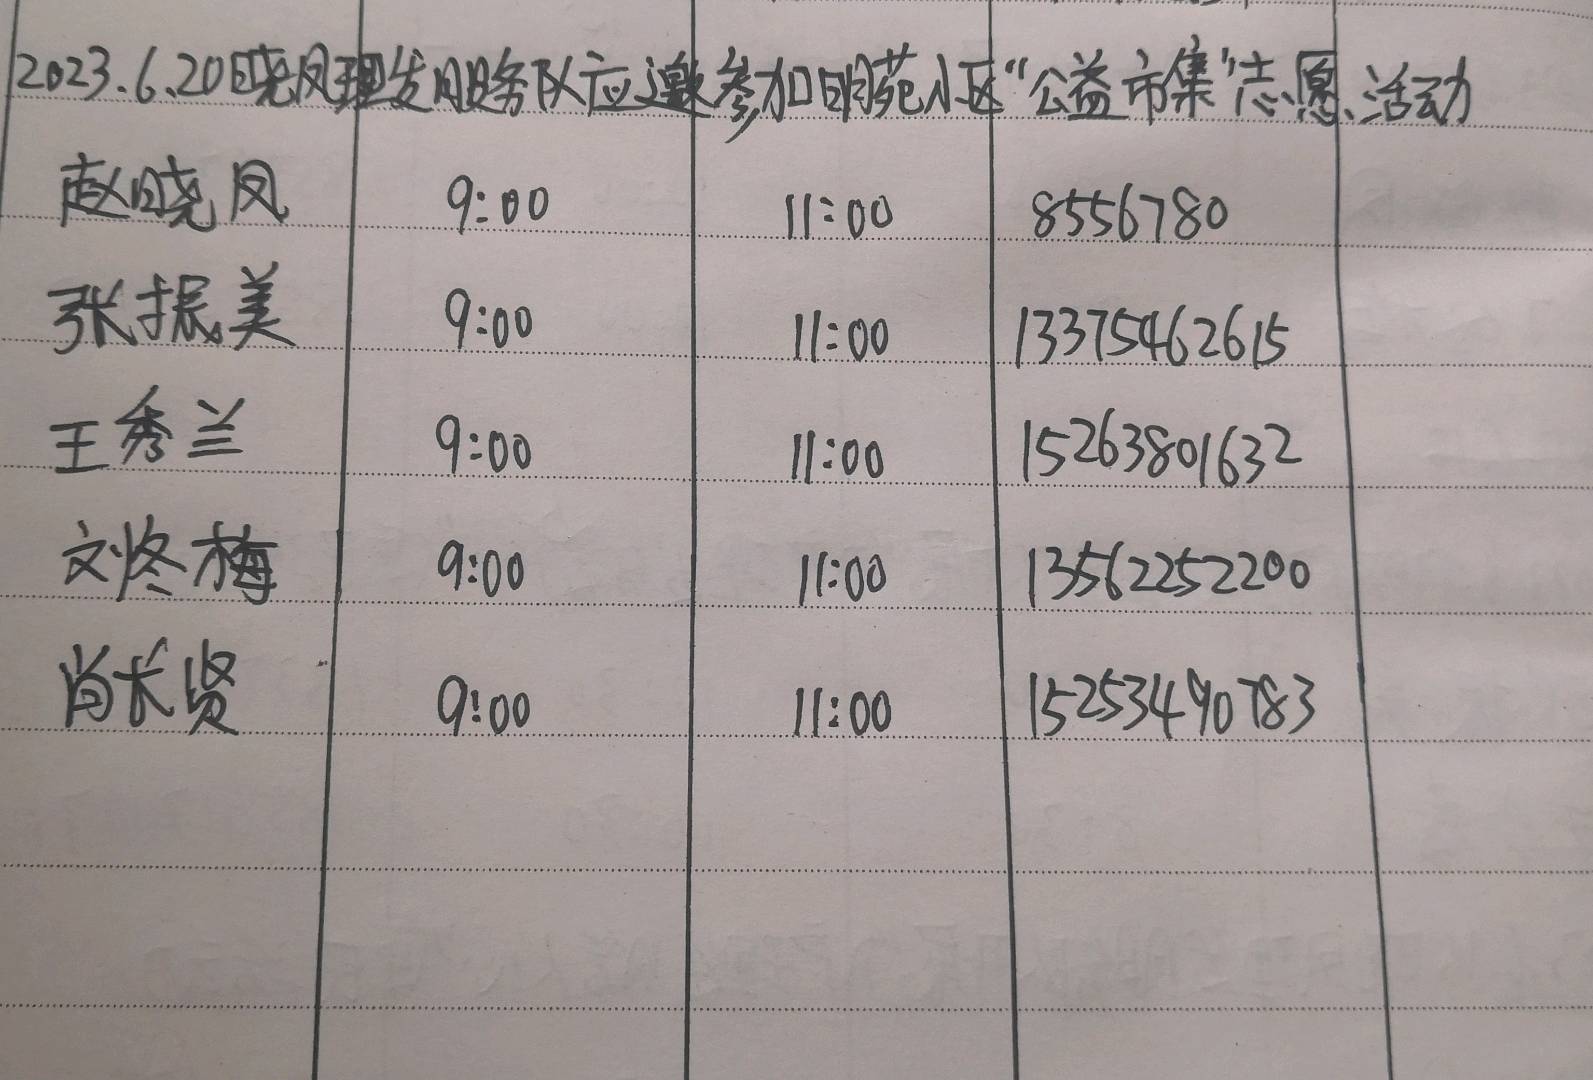 2023.6.20晓凤理发服务队应邀参加明苑小区“公益市集”志愿活动
赵晓凤 9:00 11:00 8556780
张振美 9:00 11:00 13375462615
王秀兰 9:00 11:00 15263801632
刘冬梅 9:00 11:00 13562252200
肖长贤 9:00 11:00 15253490783